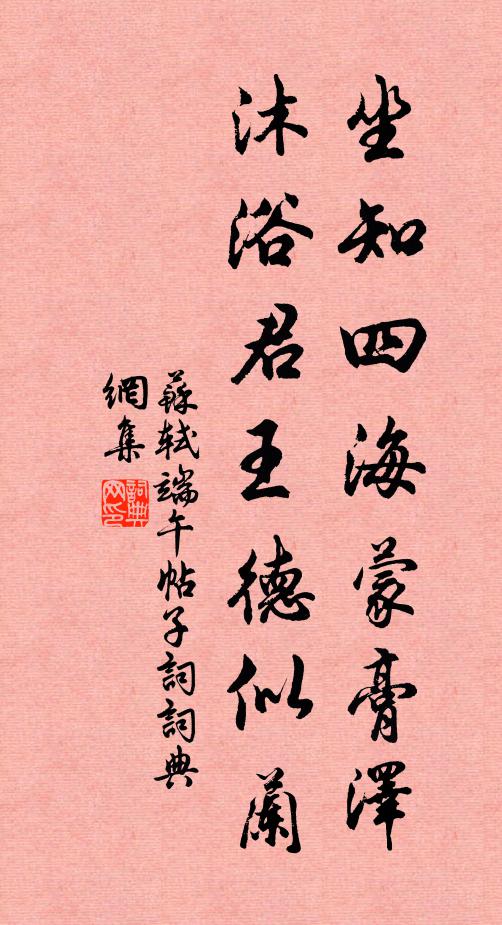 坐知四海蒙膏澤
沐浴君王德似蘭
蘇軾端午帖子詞詞典
網集
詞典
网印